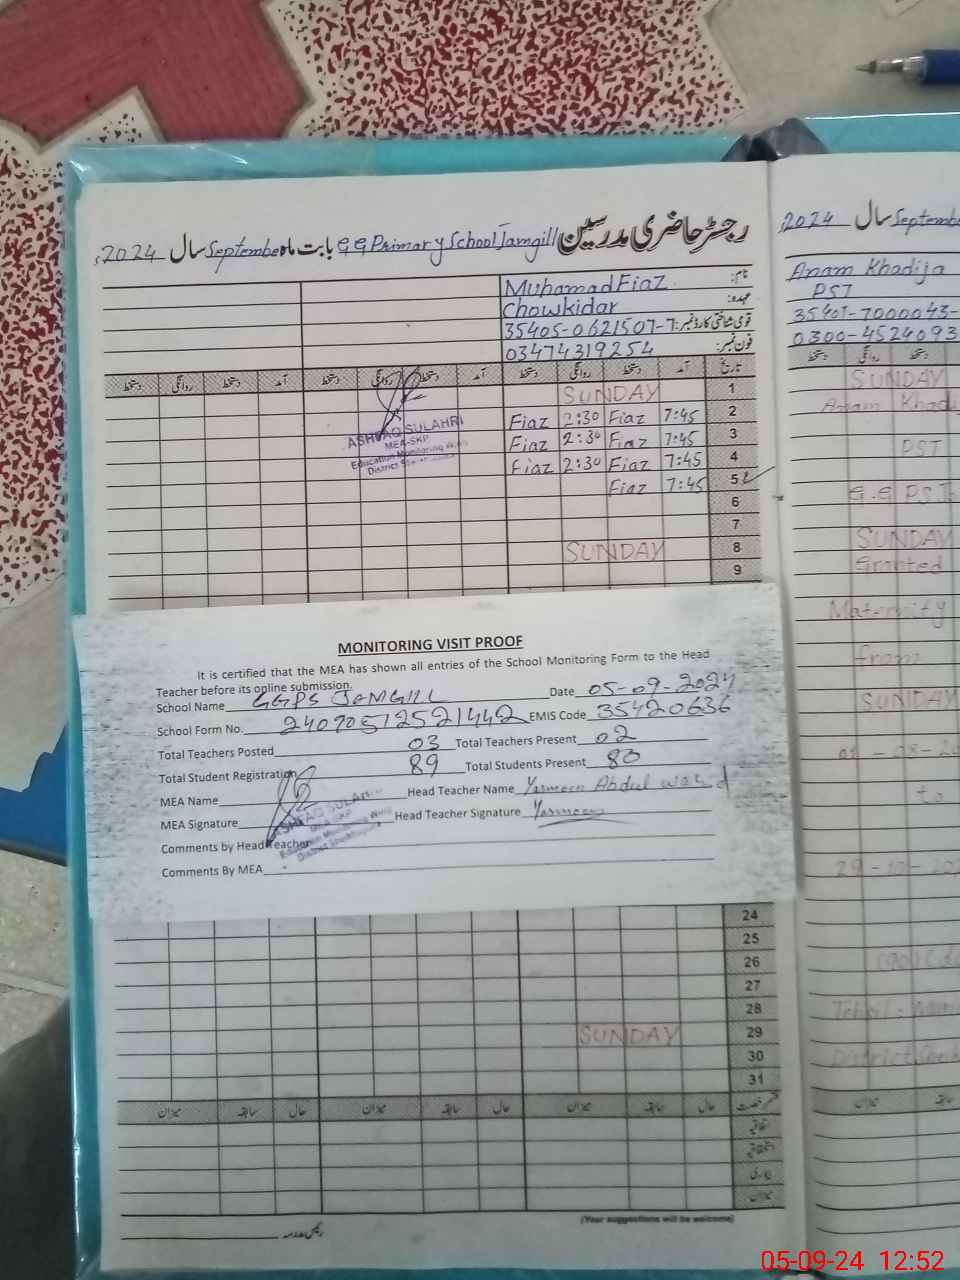 رجسٹر حاضری مدرسین G G Primary School Jamgill بابت ماہ September سال 2024ء
نام: Muhamad Fiaz
عہدہ: Chowkidar
قومی شناختی کارڈ نمبر: 35405-0621507-7
فون نمبر: 03474319254
تاریخ آمد دستخط روانگی دستخط آمد دستخط روانگی دستخط آمد دستخط روانگی دستخط
1 SUNDAY
2 7:45 Fiaz 2:30 Fiaz
3 7:45 Fiaz 2:30 Fiaz
4 7:45 Fiaz 2:30 Fiaz
5 7:45 Fiaz
6
7
8 SUNDAY
9
ASHFAQ SULAHRI
MEA-SKP
Education Monitoring Wing
MONITORING VISIT PROOF
It is certified that the MEA has shown all entries of the School Monitoring Form to the Head
Teacher before its online submission.
School Name GGPS JAMGILL Date 05-09-2024
School Form No. 2407051252144 2 EMIS Code 35420636
Total Teachers Posted 03 Total Teachers Present 02
Total Student Registration 89 Total Students Present 80
MEA Name Head Teacher Name Yasmeen Abdul wahid
MEA Signature Head Teacher Signature Yasmeen
ASHFAQ SULAHRI
MEA-SKP
Education Monitoring Wing
Comments by Head Teacher
Comments By MEA
24
25
26
27
28
29 SUNDAY
30
31
حال سابقہ میزان حال سابقہ میزان حال سابقہ میزان
اتفاقیہ
استحقاقیہ
بیماری
میزان
(Your suggestions will be welcome)
رئیس مدرسہ
سال September 2024ء
Anam Khadija
PST
35401-7000043-
0300-4524093
دستخط روانگی دستخط
SUNDAY
Anam Khadi
PST
G.G P.S.J
SUNDAY
Granted
Maternity
from
SUNDAY
01-08-20
to
29-10-20
میزان
05-09-24 12:52